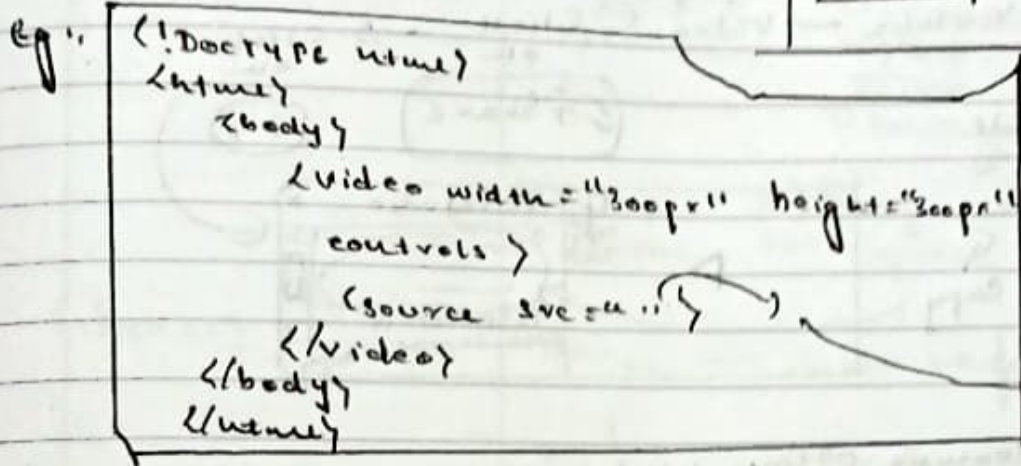 Eg:
<!DOCTYPE html>
<html>
<body>
<video width="300px" height="300px"
controls>
<source src="">
</video>
</body>
</html>